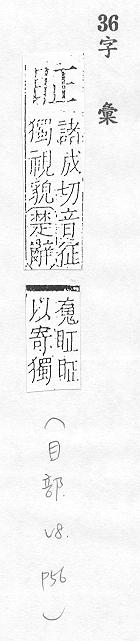 36 字彙
眐
諸成切音征
獨視貌楚辭
䰟眐眐
以寄獨
(目部. v8. p56)